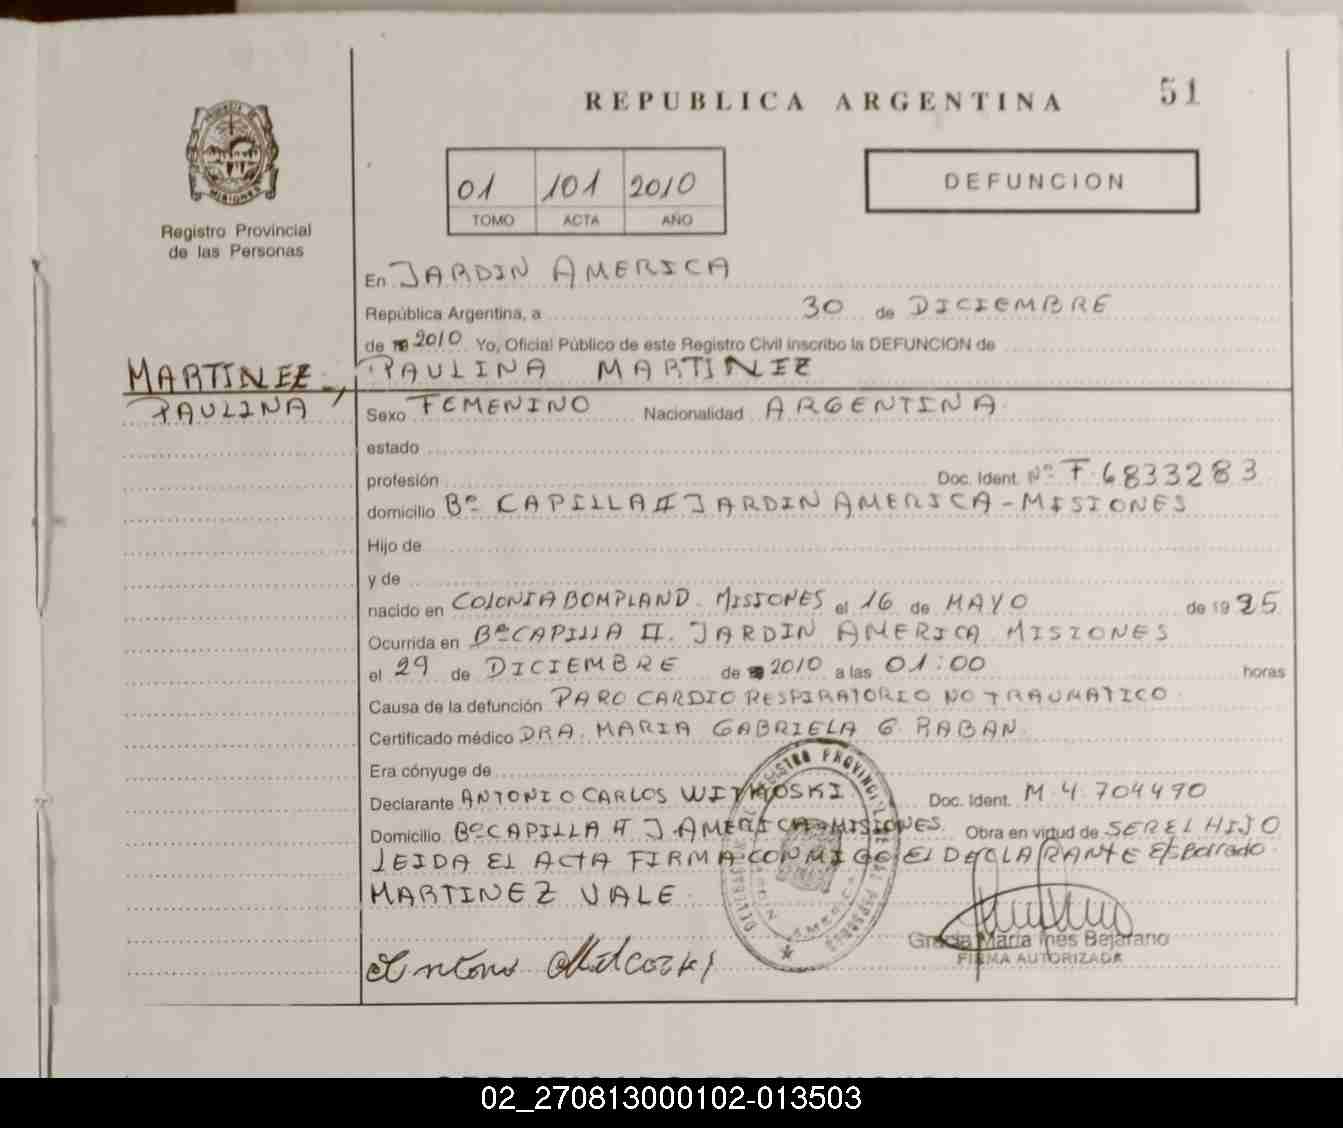 REPUBLICA ARGENTINA
51
01 101 2010
TOMO ACTA AÑO
DEFUNCION
Registro Provincial
de las Personas
En JARDIN AMERICA
República Argentina, a 30 de DICIEMBRE
de 2010 Yo, Oficial Público de este Registro Civil inscribo la DEFUNCION de
PAULINA MARTINEZ
MARTINEZ,
PAULINA
Sexo FEMENINO Nacionalidad ARGENTINA
estado
profesión Doc. Ident. Nº F 6833283
domicilio Bº CAPILLA II JARDIN AMERICA - MISIONES
Hijo de
y de
nacido en COLONIA BOMPLAND. MISIONES el 16 de MAYO de 19
Ocurrida en Bº CAPILLA II. JARDIN AMERICA MISIONES
el 29 de DICIEMBRE de 2010 a las 01:00 horas
Causa de la defunción PARO CARDIO RESPIRATORIO NO TRAUMATICO
Certificado médico DRA. MARIA GABRIELA G. RABAN
Era cónyuge de
Declarante ANTONIO CARLOS Doc. Ident. M. 4.704490
Domicilio Bº CAPILLA II J. AMERICA - MISIONES Obra en virtud de SER EL HIJO
LEIDA EL ACTA FIRMA CONMIGO EL DECLARANTE E/Borrado
MARTINEZ VALE
Gracia Maria Ines Bejarano
FIRMA AUTORIZADA
02_270813000102-013503